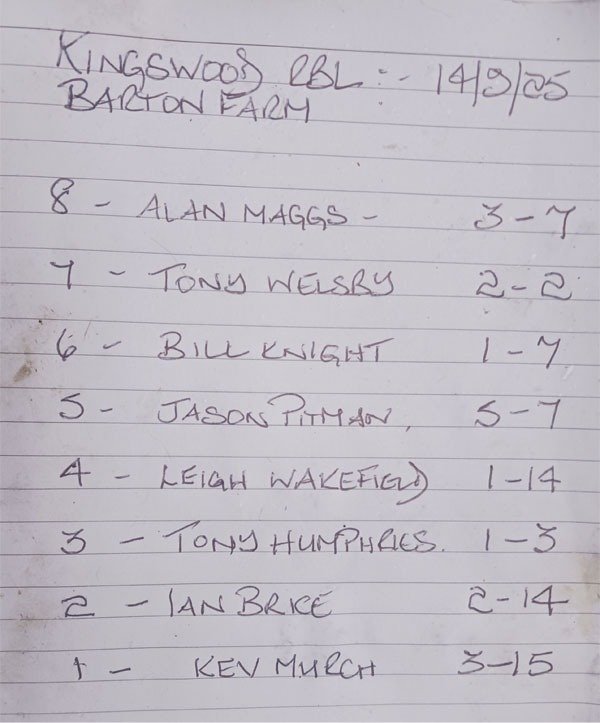 KINGSWOOD RBL :- 14/9/25
BARTON FARM
8 - ALAN MAGGS - 3-7
7 - TONY WELSBY 2-2
6 - BILL KNIGHT 1-7
5 - JASON PITMAN, 5-7
4 - LEIGH WAKEFIELD 1-14
3 - TONY HUMPHRIES. 1-3
2 - IAN BRICE 2-14
1 - KEV MURCH 3-15